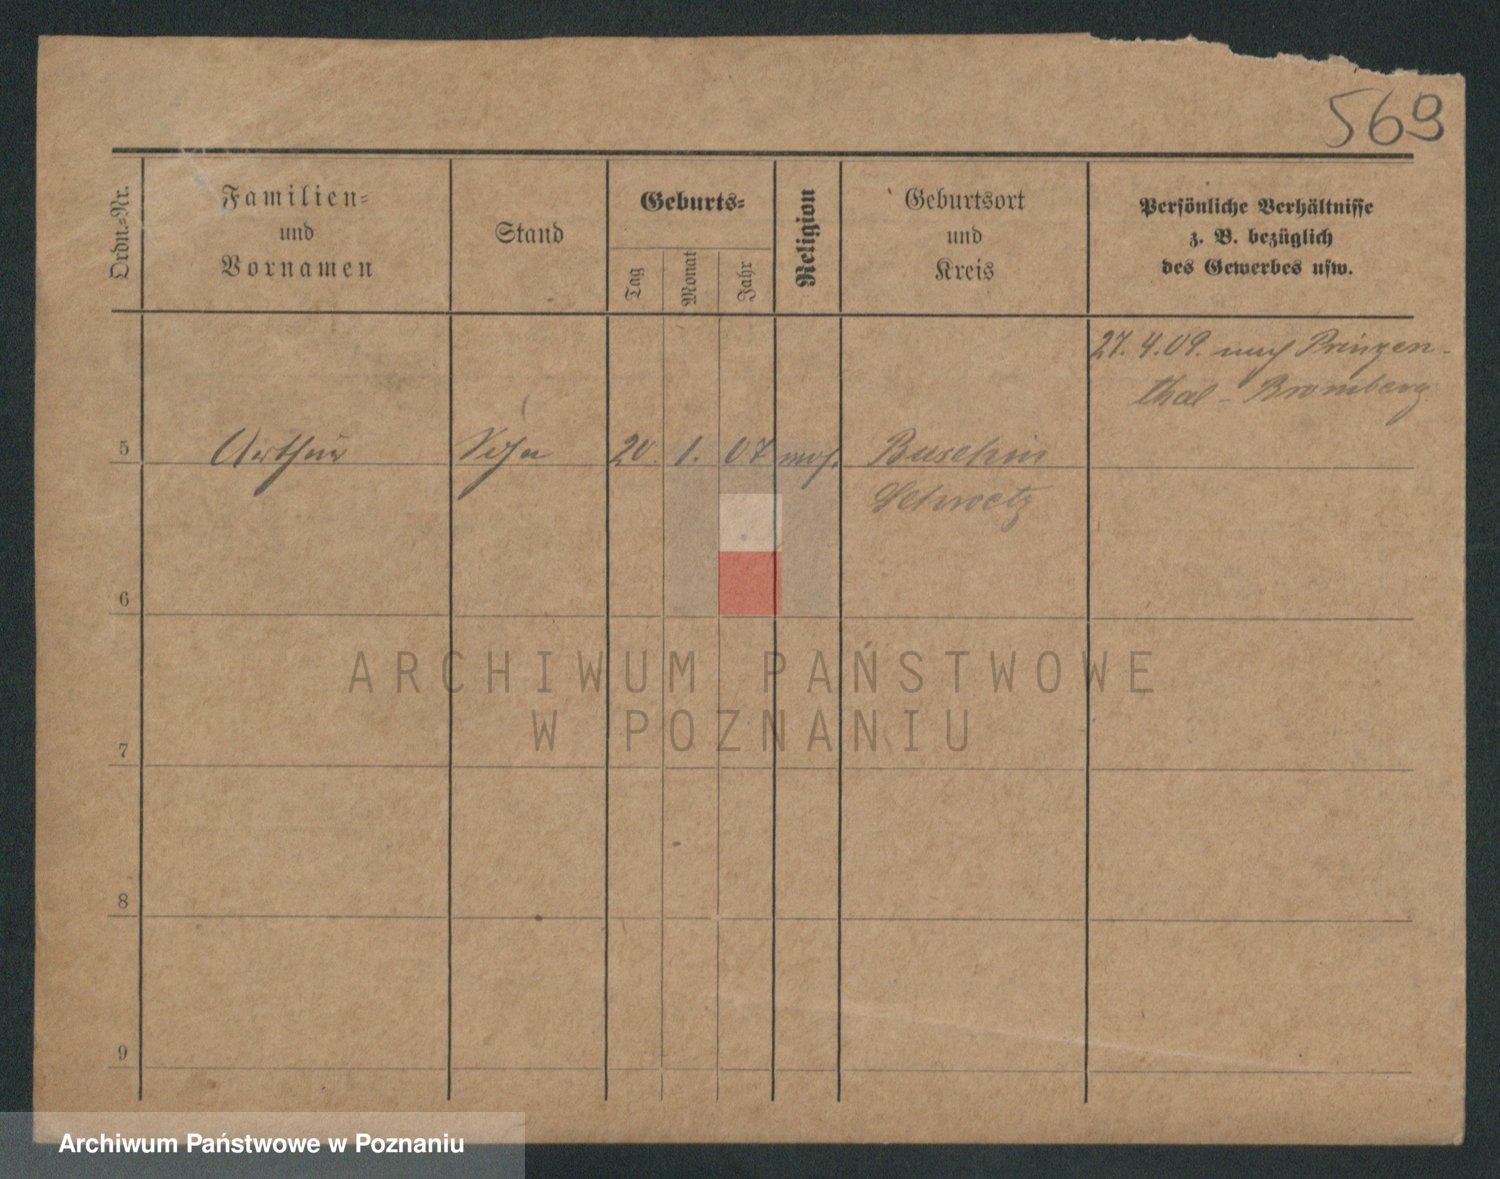 569
Ordn.-Nr.
Familien-
und
Vornamen
Stand
Geburts-
Tag
Monat
Jahr
Religion
Geburtsort
und
Kreis
Persönliche Verhältnisse
z. B. bezüglich
des Gewerbes usw.
27. 4. 09. nach Prinzen-
thal - Bromberg
5 Arthur Sohn 20. 1. 07 mos. Buschin
Schwetz
6
7
8
9
ARCHIWUM PAŃSTWOWE
W POZNANIU
Archiwum Państwowe w Poznaniu